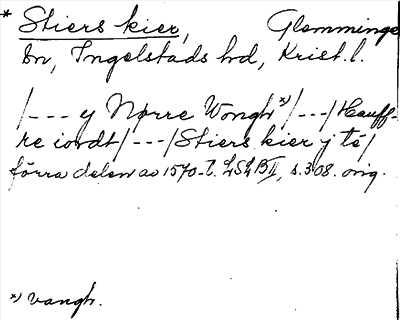 * Stiers kier, Glemminge
sn, Ingelstads hd, Krist. l.
/--- y Nørre Wongh *)/---/Hauff-
re iordt/---/Stiers kier y té/
förra delen av 1570-t. LSLBII, s. 308. orig.
*) vangh.